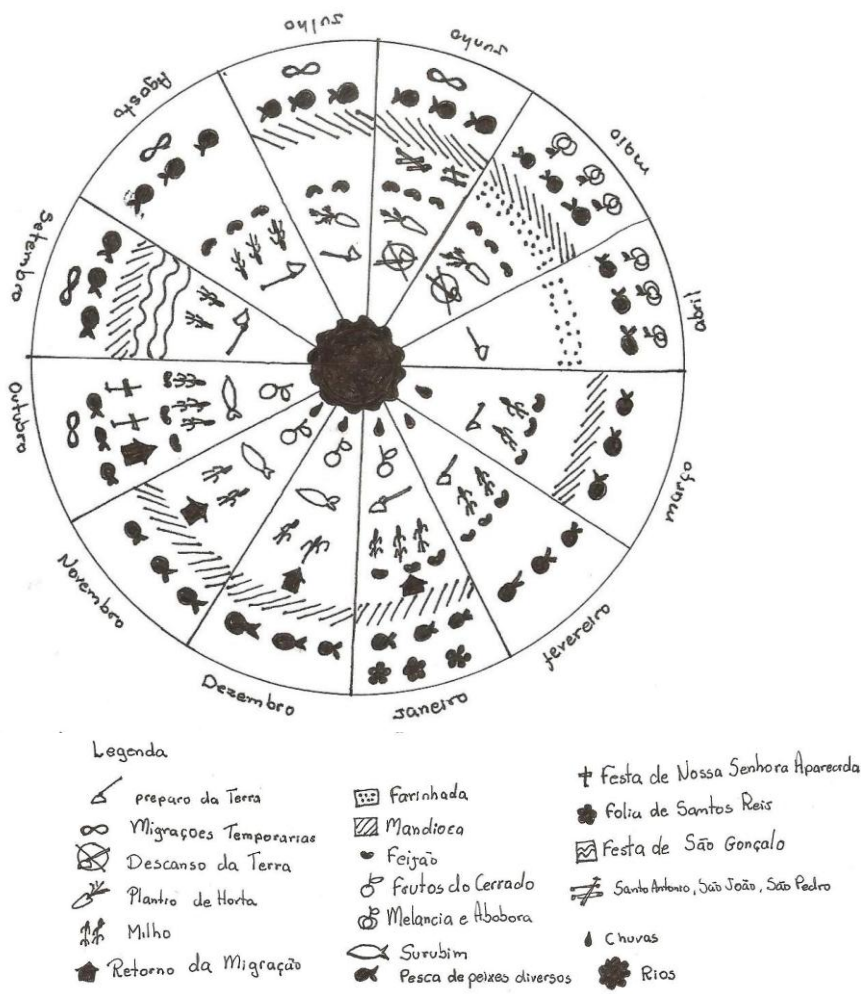 Julho
Junho
Agosto
maio
Setembro
abril
Outubro
março
Novembro
fevereiro
Dezembro
Janeiro
Legenda
preparo da Terra
Migrações Temporarias
Descanso da Terra
Plantio de Horta
Milho
Retorno da Migração
Farinhada
Mandioca
Feijão
Frutos do Cerrado
Melancia e Abobora
Surubim
Pesca de peixes diversos
Festa de Nossa Senhora Aparecida
Folia de Santos Reis
Festa de São Gonçalo
Santo Antonio, São João, São Pedro
Chuvas
Rios